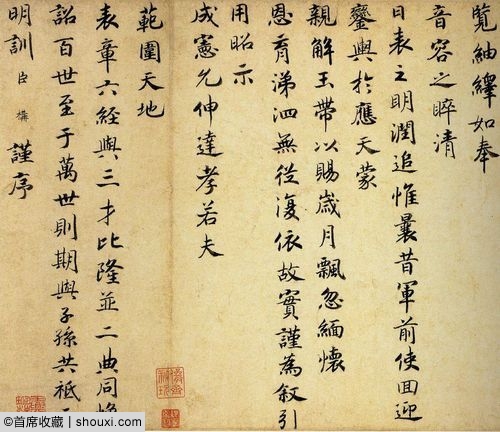 覽紬繹如奉
音容之睟清
日表之明潤追惟曩昔軍前使回迎
鑾輿於應天蒙
親解玉帶以賜歲月飄忽緬懷
恩育涕泗無從復依故實謹為敘引
用昭示
成憲允伸達孝若夫
範圍天地
表章六經與三才比隆並二典同
詔百世至于萬世則期與子孫共祗
明訓臣構謹序
©首席收藏 | shouxi.com